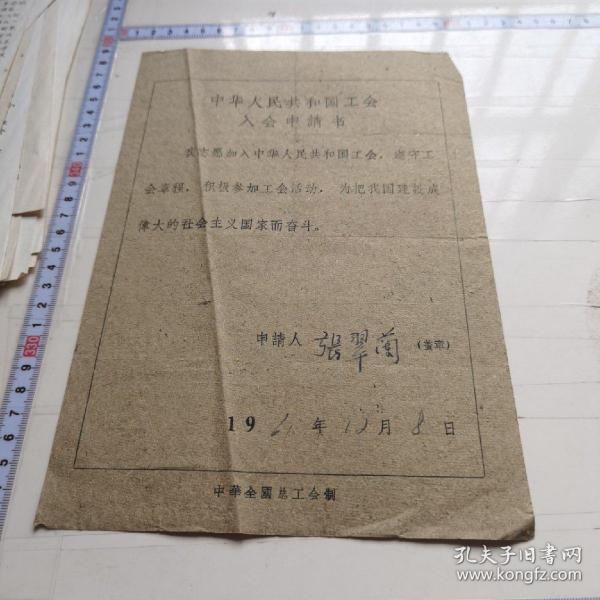 中华人民共和国工会
入会申請书
我志愿加入中华人民共和国工会，遵守工
会章程，积极参加工会活动，为把我国建设成
偉大的社会主义国家而奋斗。
申請人 張翠蘭 (盖章)
19 年 月 8 日
中華全國总工会制
孔夫子旧书网
www.kongfz.com